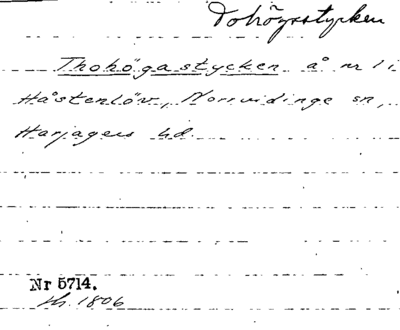 Dohögsstycken
Thohögastycken å nr 1 i
Håstenlöv, Norrvidinge sn,
Harjagers hd.
Nr 5714.
th. 1806